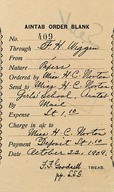 AINTAB ORDER BLANK
No. 409
Through F. H. Wiggin
From
Nature Papers
Ordered by Miss H. C. Norton
Send to Miss H. C. Norton
Girls' School, Aintab
By Mail
Expense Lt 1.00
Charge in a/c to
Miss H. C. Norton
Payment Deposit Lt 1.00
October 22, 1909.
F. F. Goodsell